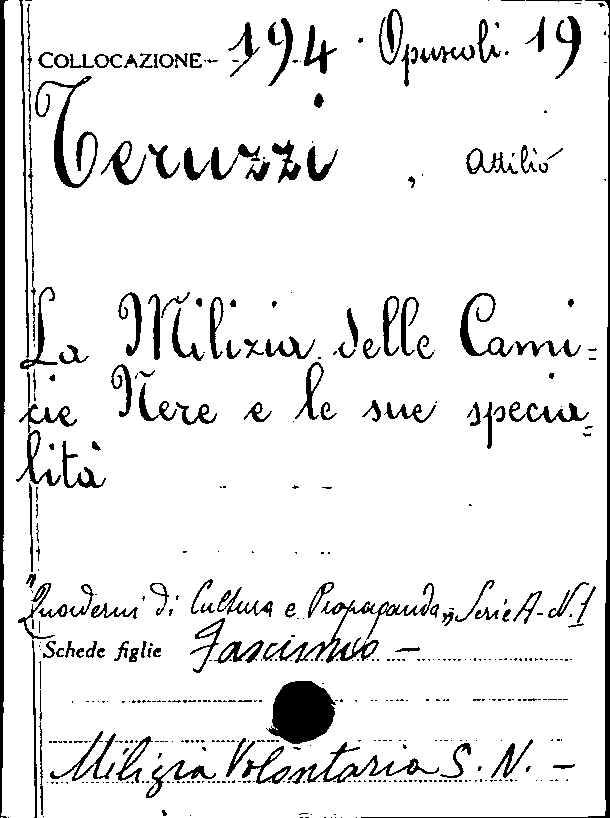 COLLOCAZIONE - 194 · Opuscoli. 19
Teruzzi, Attilio
La Milizia delle Cami=
cie Nere e le sue specia=
lità
"Quaderni di Cultura e Propaganda„ Serie A - N. 1
Schede figlie Fascismo -
Milizia Volontaria S. N. -